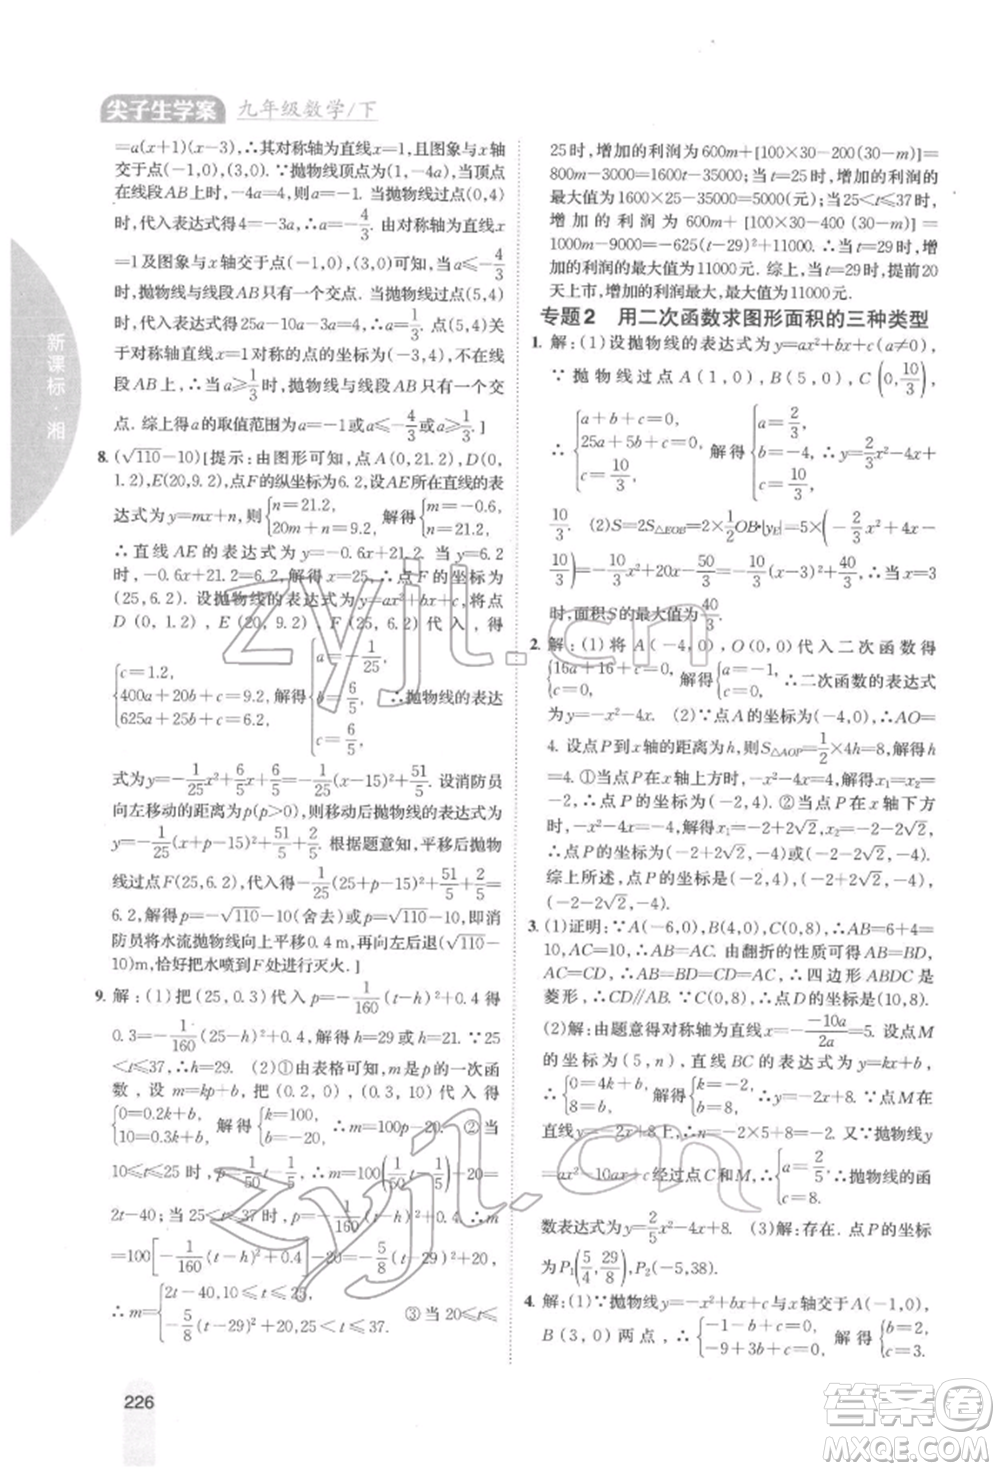 尖子生学案 九年级数学/下
=a(x+1)(x-3).∴其对称轴为直线x=1,且图象与x轴
交于点(-1,0),(3,0).∵抛物线顶点为(1,-4a),当顶点
在线段AB上时,-4a=4,∴a=-1.当抛物线过点(0,4)
时,代入表达式得4=-3a,∴a=-4/3.由对称轴为直线x
=1及图象与x轴交于点(-1,0),(3,0)可知,当a≤-4/3
时,抛物线与线段AB有一个交点.当抛物线过点(5,4)
时,代入表达式得4=25a-10a-3a,∴a=1/3.同理可知
点(5,4)关于对称轴的对称点的坐标为(-3,4),不在线
段AB上,当a≥1/3时,抛物线与线段AB也有一个交
点.综上所述,a的取值范围为a=-1或a≤-4/3或a≥1/3.]
8. (√110-10)[提示:由图形可知,点A(0,21.2),D(0,
1.2),E(20,9.2),点F的纵坐标为6.2,设AE所在的直线的表
达式为y=mx+n,则{n=21.2, 20m+n=9.2, 解得{m=-0.6, n=21.2.
∴直线AE的表达式为y=-0.6x+21.2.当y=6.2
时,6.2=-0.6x+21.2,解得x=25,∴点F的坐标为
(25,6.2).设抛物线的表达式为y=ax²+bx+c,将点
D(0,1.2),E(20,9.2),F(25,6.2)代入,得
{c=1.2, 400a+20b+c=9.2, 625a+25b+c=6.2, 解得{a=-1/25, b=6/5, c=6/5, ∴抛物线的表达
式为y=-1/25x²+6/5x+6/5=-1/25(x-15)²+51/5.设消防员
向左移动的距离为p(p>0),则移动后抛物线的表达式为
y=-1/25(x+p-15)²+51/5+2/5.根据题意知,平移后抛物
线过点F(25,6.2),代入得-1/25(25+p-15)²+51/5+2/5=
6.2,解得p=-√110-10(舍去)或p=√110-10,即消
防员将水流抛物线向上平移0.4m,再向左后退(√110-
10)m,恰好把水喷到F处进行灭火.]
9. 解:(1)把(25,0.3)代入p=-1/160(t-h)²+0.4得
0.3=-1/160(25-h)²+0.4,解得h=29或h=21.∵25
≤t≤37,∴h=29. (2)①由表格可知,m是p的一次函
数,设m=kp+b,把(0.2,0),(0.3,10)代入得
{0=0.2k+b, 10=0.3k+b, 解得{k=100, b=-20, ∴m=100p-20.②当
10≤t≤25时,p=1/50t-1/5,∴m=100(1/50t-1/5)-20=
2t-40;当25≤t≤37时,p=-1/160(t-h)²+0.4,∴m
=100[-1/160(t-29)²+0.4]-20=-5/8(t-29)²+20,
∴m={2t-40,10≤t≤25, -5/8(t-29)²+20,25<t≤37. ③当20≤t≤
25时,增加的利润为600m+[100×30-200(30-t)]=
800m-40000=1600t-32000,当t=25时,增加的利润的
最大值为1600×25-35000=5000(元);当25<t≤37时,
增加的利润为600m+[100×30-400(30-t)]=
1000m-9000=-625(t-29)²+11000.∴当t=29时,增
加的利润的最大值为11000元.综上,当t=29时,提前20
天上市,增加的利润最大,最大值为11000元.
专题2 用二次函数求图形面积的三种类型
1. 解:(1)设抛物线的表达式为y=ax²+bx+c(a≠0).
∵抛物线过点A(1,0),B(5,0),C(0,10/3),
∴{a+b+c=0, 25a+5b+c=0, c=10/3, 解得{a=2/3, b=-4, c=10/3, ∴y=2/3x²-4x+
10/3. (2)S=2S△EOB=2×1/2OB·|yE|=5×(-2/3x²+4x-
10/3)=-10/3x²+20x-50/3=-10/3(x-3)²+40/3,∴当x=3
时,面积S的最大值为40/3.
2. 解:(1)将A(-4,0),O(0,0)代入二次函数得
{16a+16+c=0, c=0, 解得{a=-1, c=0, ∴二次函数的表达式
为y=-x²-4x. (2)∵点A的坐标为(-4,0),∴AO=
4.设点P到x轴的距离为h,则S△AOP=1/2×4h=8,解得h
=4.①当点P在x轴上方时,-x²-4x=4,解得x₁=x₂
=-2,∴点P的坐标为(-2,4).②当点P在x轴下方
时,-x²-4x=-4,解得x₁=-2+2√2,x₂=-2-2√2,
∴点P的坐标为(-2+2√2,-4)或(-2-2√2,-4).
综上所述,点P的坐标为(-2,4)或(-2+2√2,-4)或
(-2-2√2,-4).
3. (1)证明:∵A(-6,0),B(4,0),C(0,8),∴AB=6+4=
10,AC=√(6²+8²)=10,∴AB=AC.由翻折的性质可得AB=BD,
AC=CD,∴AB=BD=AC=CD,∴四边形ABDC是
菱形,∴CD∥AB.∵C(0,8),∴点D的坐标是(10,8).
(2)解:由题意得对称轴为直线x=-(-10a)/2a=5.设点M
的坐标为(5,n),直线BC的表达式为y=kx+b,
∴{0=4k+b, b=8, 解得{k=-2, b=8, ∴y=-2x+8.∵点M在
直线y=-2x+8上,∴n=-2×5+8=-2.又∵抛物线y
=ax²-10ax+c经过点C和M,∴{a=2/5, c=8. ∴抛物线的函
数表达式为y=2/5x²-4x+8. (3)解:存在.点P的坐标
为P₁(5/4,29/8)或P₂(-5,38).
4. 解:(1)∵抛物线y=-x²+bx+c与x轴交于A(-1,0),
B(3,0)两点,∴{-1-b+c=0, -9+3b+c=0, 解得{b=2, c=3.
新课标·湘
226
zyjl.cn
zyjl.cn
答案圈
MXQE.COM